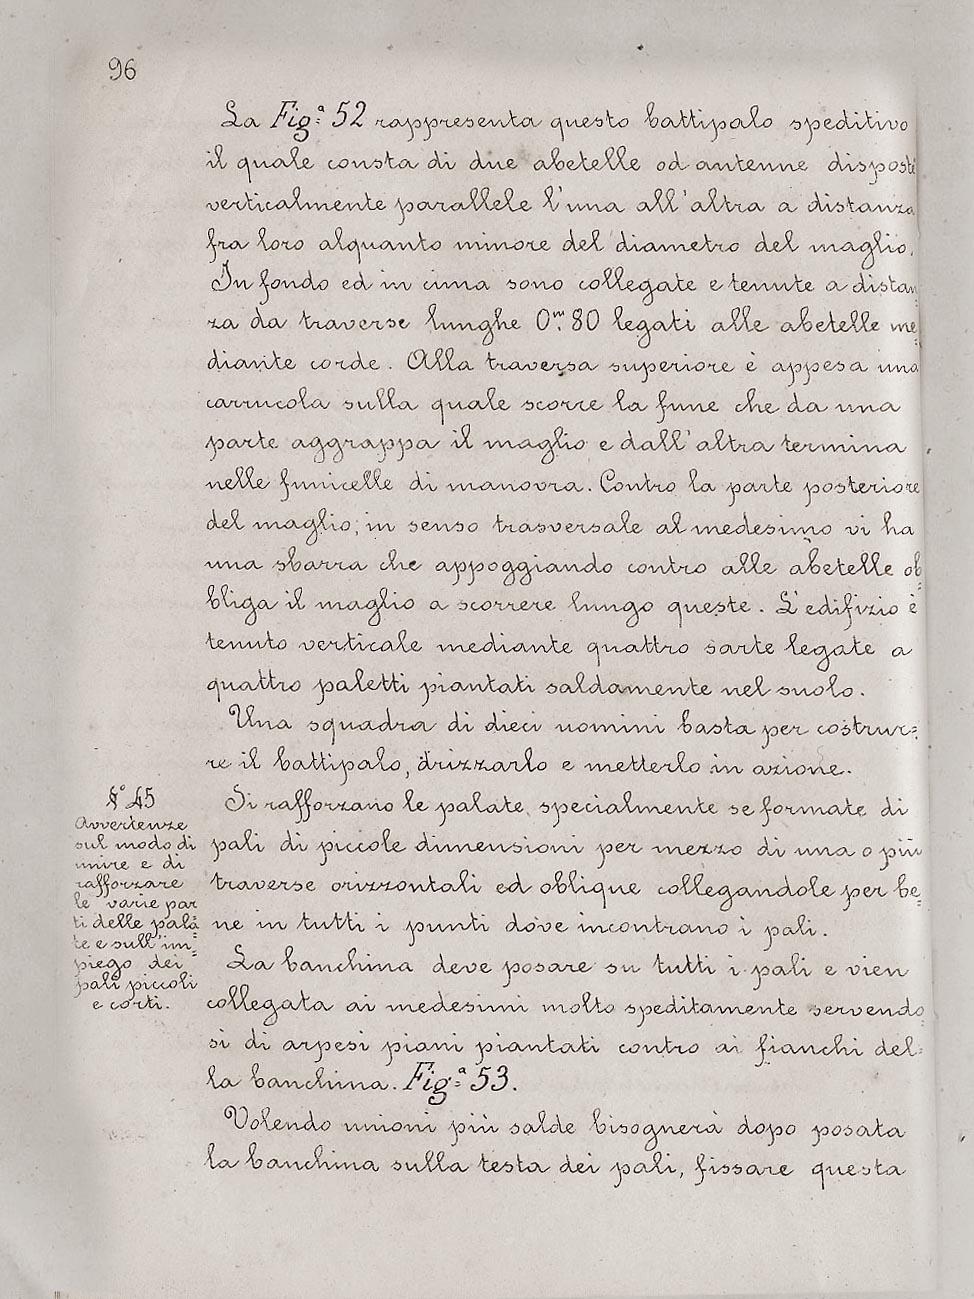 96
La Fig.ª 52 rappresenta questo battipalo speditivo
il quale consta di due abetelle od antenne disposte
verticalmente parallele l'una all'altra a distanza
fra loro alquanto minore del diametro del maglio.
In fondo ed in cima sono collegate e tenute a distan=
za da traverse lunghe 0.m 80 legati alle abetelle me=
diante corde. Alla traversa superiore è appesa una
carrucola sulla quale scorre la fune che da una
parte aggrappa il maglio e dall'altra termina
nelle funicelle di manovra. Contro la parte posteriore
del maglio, in senso trasversale al medesimo vi ha
una sbarra che appoggiando contro alle abetelle ob=
bliga il maglio a scorrere lungo queste. L'edifizio è
tenuto verticale mediante quattro sarte legate a
quattro paletti piantati saldamente nel suolo.
Una squadra di dieci uomini basta per costrur=
re il battipalo, drizzarlo e metterlo in azione.
§° 45
Avvertenze
sul modo di
unire e di
rafforzare
le varie par
ti delle pala=
te e sull'im=
piego dei
pali piccoli
e corti.
Si rafforzano le palate, specialmente se formate di
pali di piccole dimensioni per mezzo di una o più
traverse orizzontali ed oblique collegandole per be=
ne in tutti i punti dove incontrano i pali.
La banchina deve posare su tutti i pali e vien
collegata ai medesimi molto speditamente servendo
si di arpesi piani piantati contro ai fianchi del=
la banchina. Fig.ª 53.
Volendo unioni più salde bisognerà dopo posata
la banchina sulla testa dei pali, fissare questa